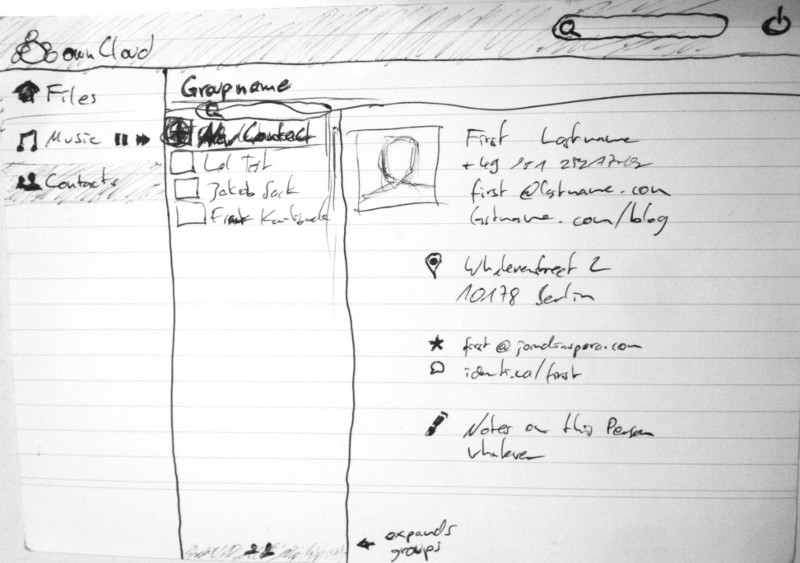 ownCloud
Files
Music
Contacts
Groupname
New Contact
Jakob Sack
Frank
First Lastname
+49 151
first@lastname.com
lastname.com/blog
Whateverstreet 2
10178 Berlin
first@joindiaspora.com
identi.ca/first
Notes on this Person
whatever
expands
groups